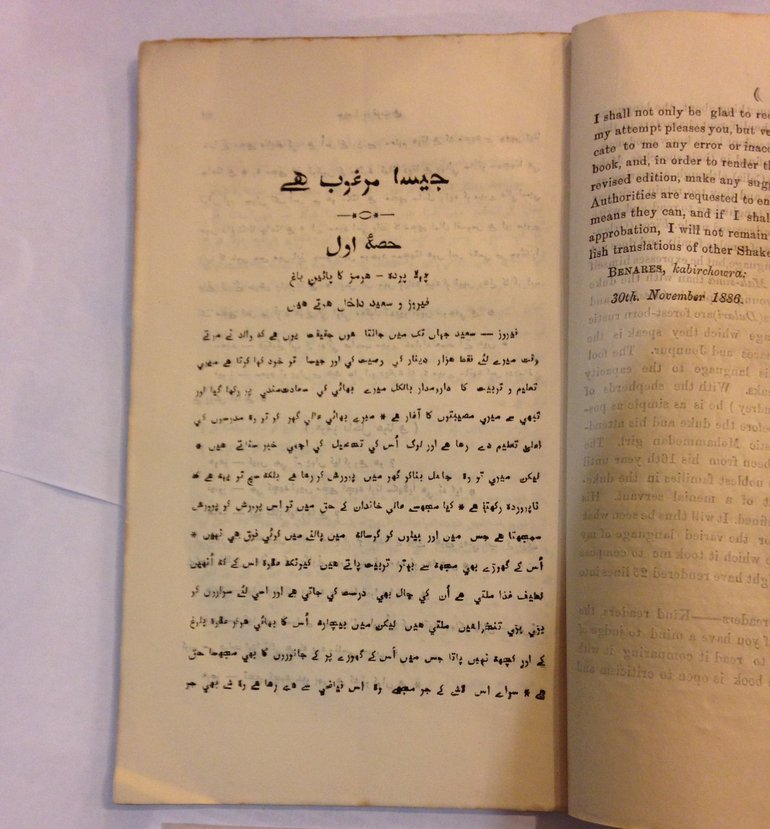 جیسا مرغوب هے
حصۂ اول
پہلا پردہ – هرمز کا پائین باغ
فیروز و سعید داخل هوتے هیں
فیروز — سعید جہاں تک میں جانتا هوں حقیقت یوں هے که والد نے مرتے
وقت میرے لئے فقط هزار دینار کی وصیت کی اور جیسا تو خود کہا کرتا هے میری
تعلیم و تربیت کا دارومدار بالکل میرے بھائی کی سعادتمندی پر رکھا گیا اور
تبھی سے میری مصیبتوں کا آغاز هے * میرے بھائی عالي گهر کو تو وہ مدرسوں کی
اعلیٰ تعلیم دے رها هے اور لوگ اُس کی تحصیل کی اچھی خبر سناتے هیں *
لیکن میری تو وہ جاهل بناکر گھر میں پرورش کر رها هے بلکه سچ تو یہہ هے که
ناپروردہ رکھتا هے * کیا مجھسے عالی خاندان کے حق میں تو اس پرورش کو پرورش
سمجھتا هے جس میں اور بیلوں کو گوسالہ میں پالنے میں کوئی فرق هی نہیں *
اُس کے گھوڑے بھی مجھہ سے بہتر تربیت پاتے هیں کیونکه علاوہ اس کے که اُنھیں
لطیف غذا ملتی هے اُن کی چال بھی درست کی جاتی هے اور اسی لئے سواروں کو
بڑی بڑی تنخواهیں ملتی هیں لیکن میں بیچارہ اُس کا بھائی هوکر علاوہ بلوغ
کے اور کچھہ نہیں پاتا جس میں اُس کے گھورے پر کے جانوروں کا بھی مجھسا حق
هے * سواے اس لاشے کے جو مجھے وہ اس فیاضی سے دے رها هے وہ شے بھی جو
I shall not only be glad to
my attempt pleases you, but
cate to me any error or
book, and, in order to render
revised edition, make any
Authorities are requested to
means they can, and if I
approbation, I will not remain
lish translations of other
BENARES, kabirchowra:
30th. November 1886.